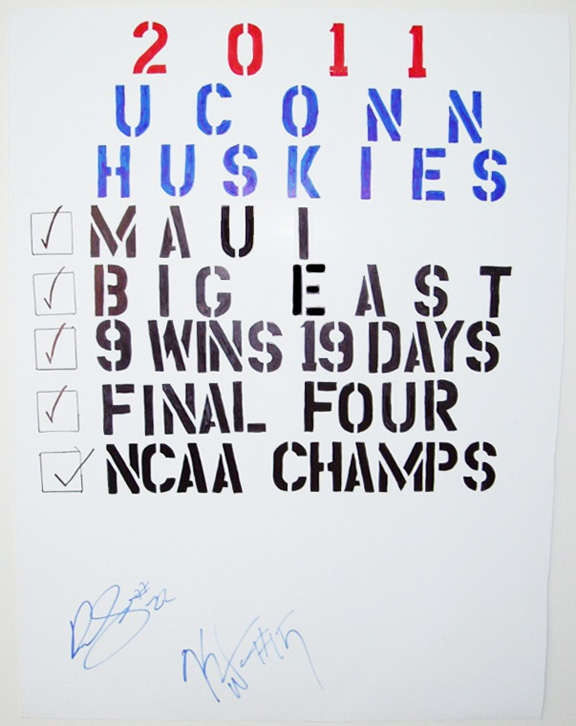 2011
UCONN
HUSKIES
MAUI
BIG EAST
9 WINS 19 DAYS
FINAL FOUR
NCAA CHAMPS
#22